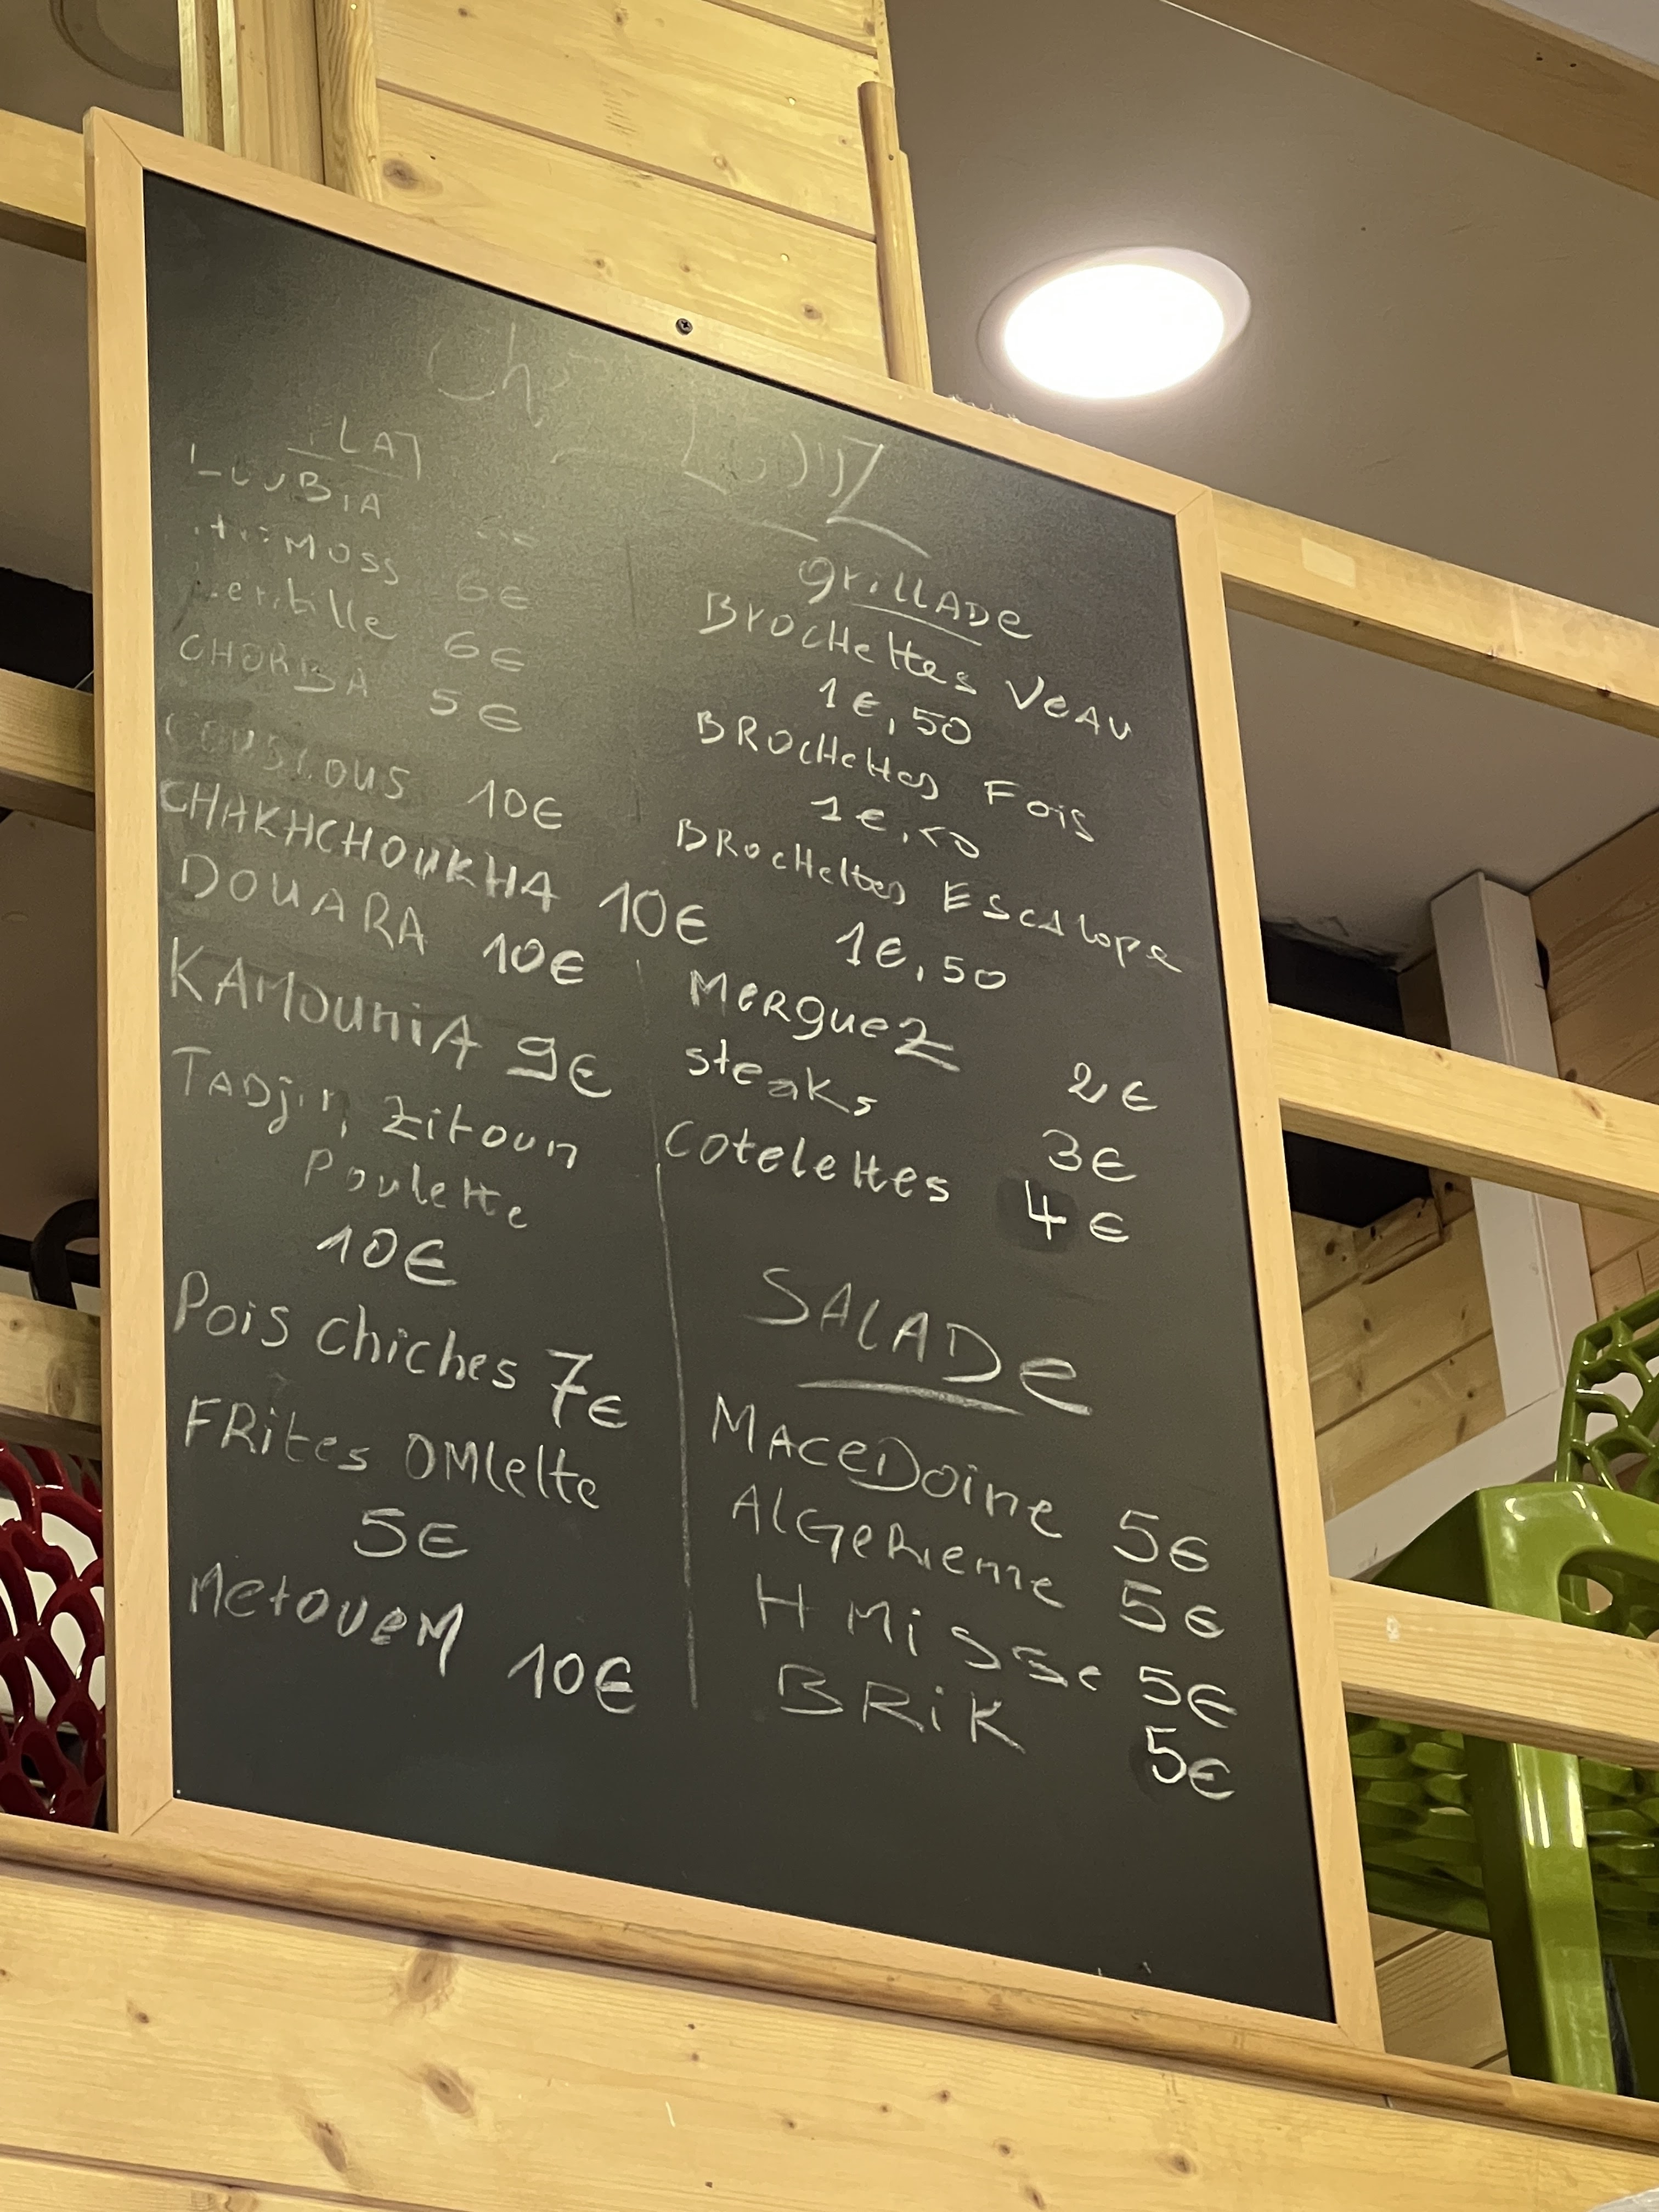 PLAT
LOUBIA
6€
lentille 6€
CHORBA 5€
COUSCOUS 10€
CHAKHCHOUKHA 10€
DOUARA 10€
KAMOUNIA 9€
TADjin Zitoun
Poulette
10€
Pois chiches 7€
FRites OMLette
5€
MetoueM 10€
grillADe
BrocHettes VeAu
1€,50
BROcHettes Fois
1€,50
BRocHettes EscAlope
1€,50
MeRgueZ 2€
steaks 3€
Cotelettes 4€
SALADe
MACeDoine 5€
AlGeRienne 5€
H Misse 5€
BRiK 5€